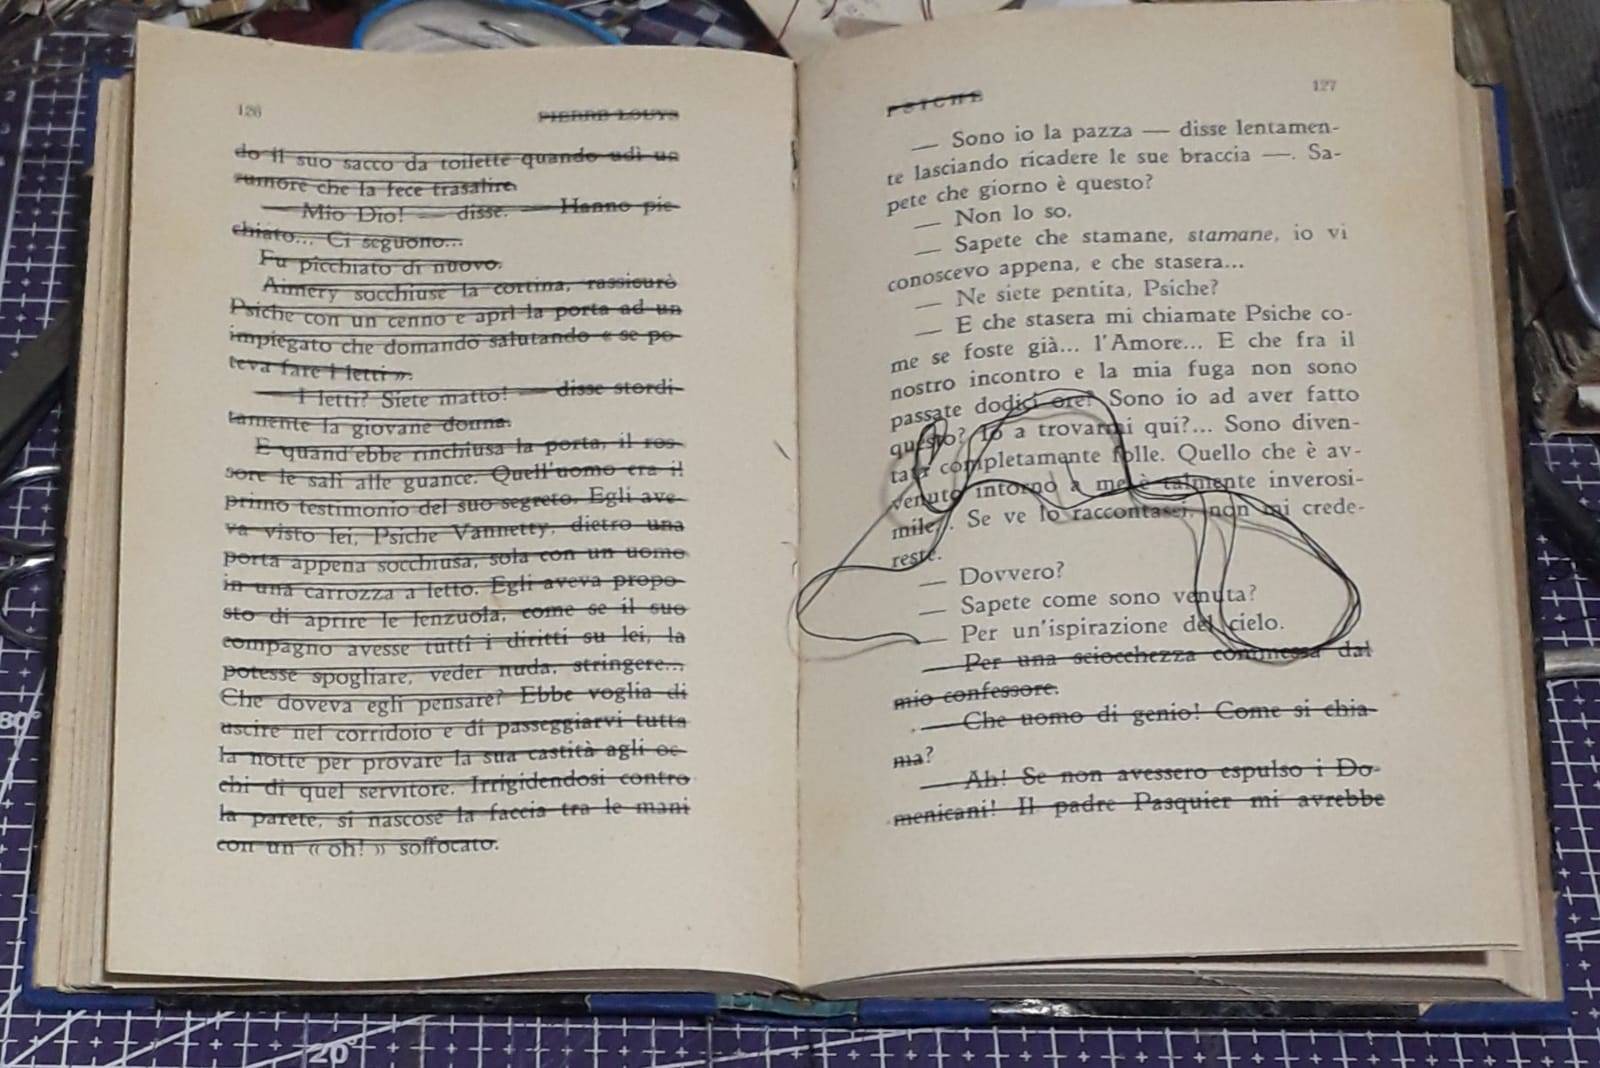 126
PIERRE LOUYS
do il suo sacco da toilette quando udì un
rumore che la fece trasalire.
— Mio Dio! — disse. — Hanno pic-
chiato... Ci seguono...
Fu picchiato di nuovo.
Aimery socchiuse la cortina, rassicurò
Psiche con un cenno e aprì la porta ad un
impiegato che domandò salutando « se po-
teva fare i letti ».
— I letti? Siete matto! — disse stordi-
tamente la giovane donna.
E quand'ebbe rinchiusa la porta, il ros-
sore le salì alle guance. Quell'uomo era il
primo testimonio del suo segreto. Egli ave-
va visto lei, Psiche Vannetty, dietro una
porta appena socchiusa, sola con un uomo
in una carrozza a letto. Egli aveva propo-
sto di aprire le lenzuola, come se il suo
compagno avesse tutti i diritti su lei, la
potesse spogliare, veder nuda, stringere...
Che doveva egli pensare? Ebbe voglia di
uscire nel corridoio e di passeggiarvi tutta
la notte per provare la sua castità agli oc-
chi di quel servitore. Irrigidendosi contro
la parete, si nascose la faccia tra le mani
con un « oh! » soffocato.
PSICHE
127
— Sono io la pazza — disse lentamen-
te lasciando ricadere le sue braccia —. Sa-
pete che giorno è questo?
— Non lo so.
— Sapete che stamane, stamane, io vi
conoscevo appena, e che stasera...
— Ne siete pentita, Psiche?
— E che stasera mi chiamate Psiche co-
me se foste già... l'Amore... E che fra il
nostro incontro e la mia fuga non sono
passate dodici ore? Sono io ad aver fatto
questo? Io a trovarmi qui?... Sono diven-
tata completamente folle. Quello che è av-
venuto intorno a me è talmente inverosi-
mile... Se ve lo raccontassi, non mi crede-
reste.
— Dovvero?
— Sapete come sono venuta?
— Per un'ispirazione del cielo.
— Per una sciocchezza commessa dal
mio confessore.
— Che uomo di genio! Come si chia-
ma?
— Ah! Se non avessero espulso i Do-
menicani! Il padre Pasquier mi avrebbe
80°
20°